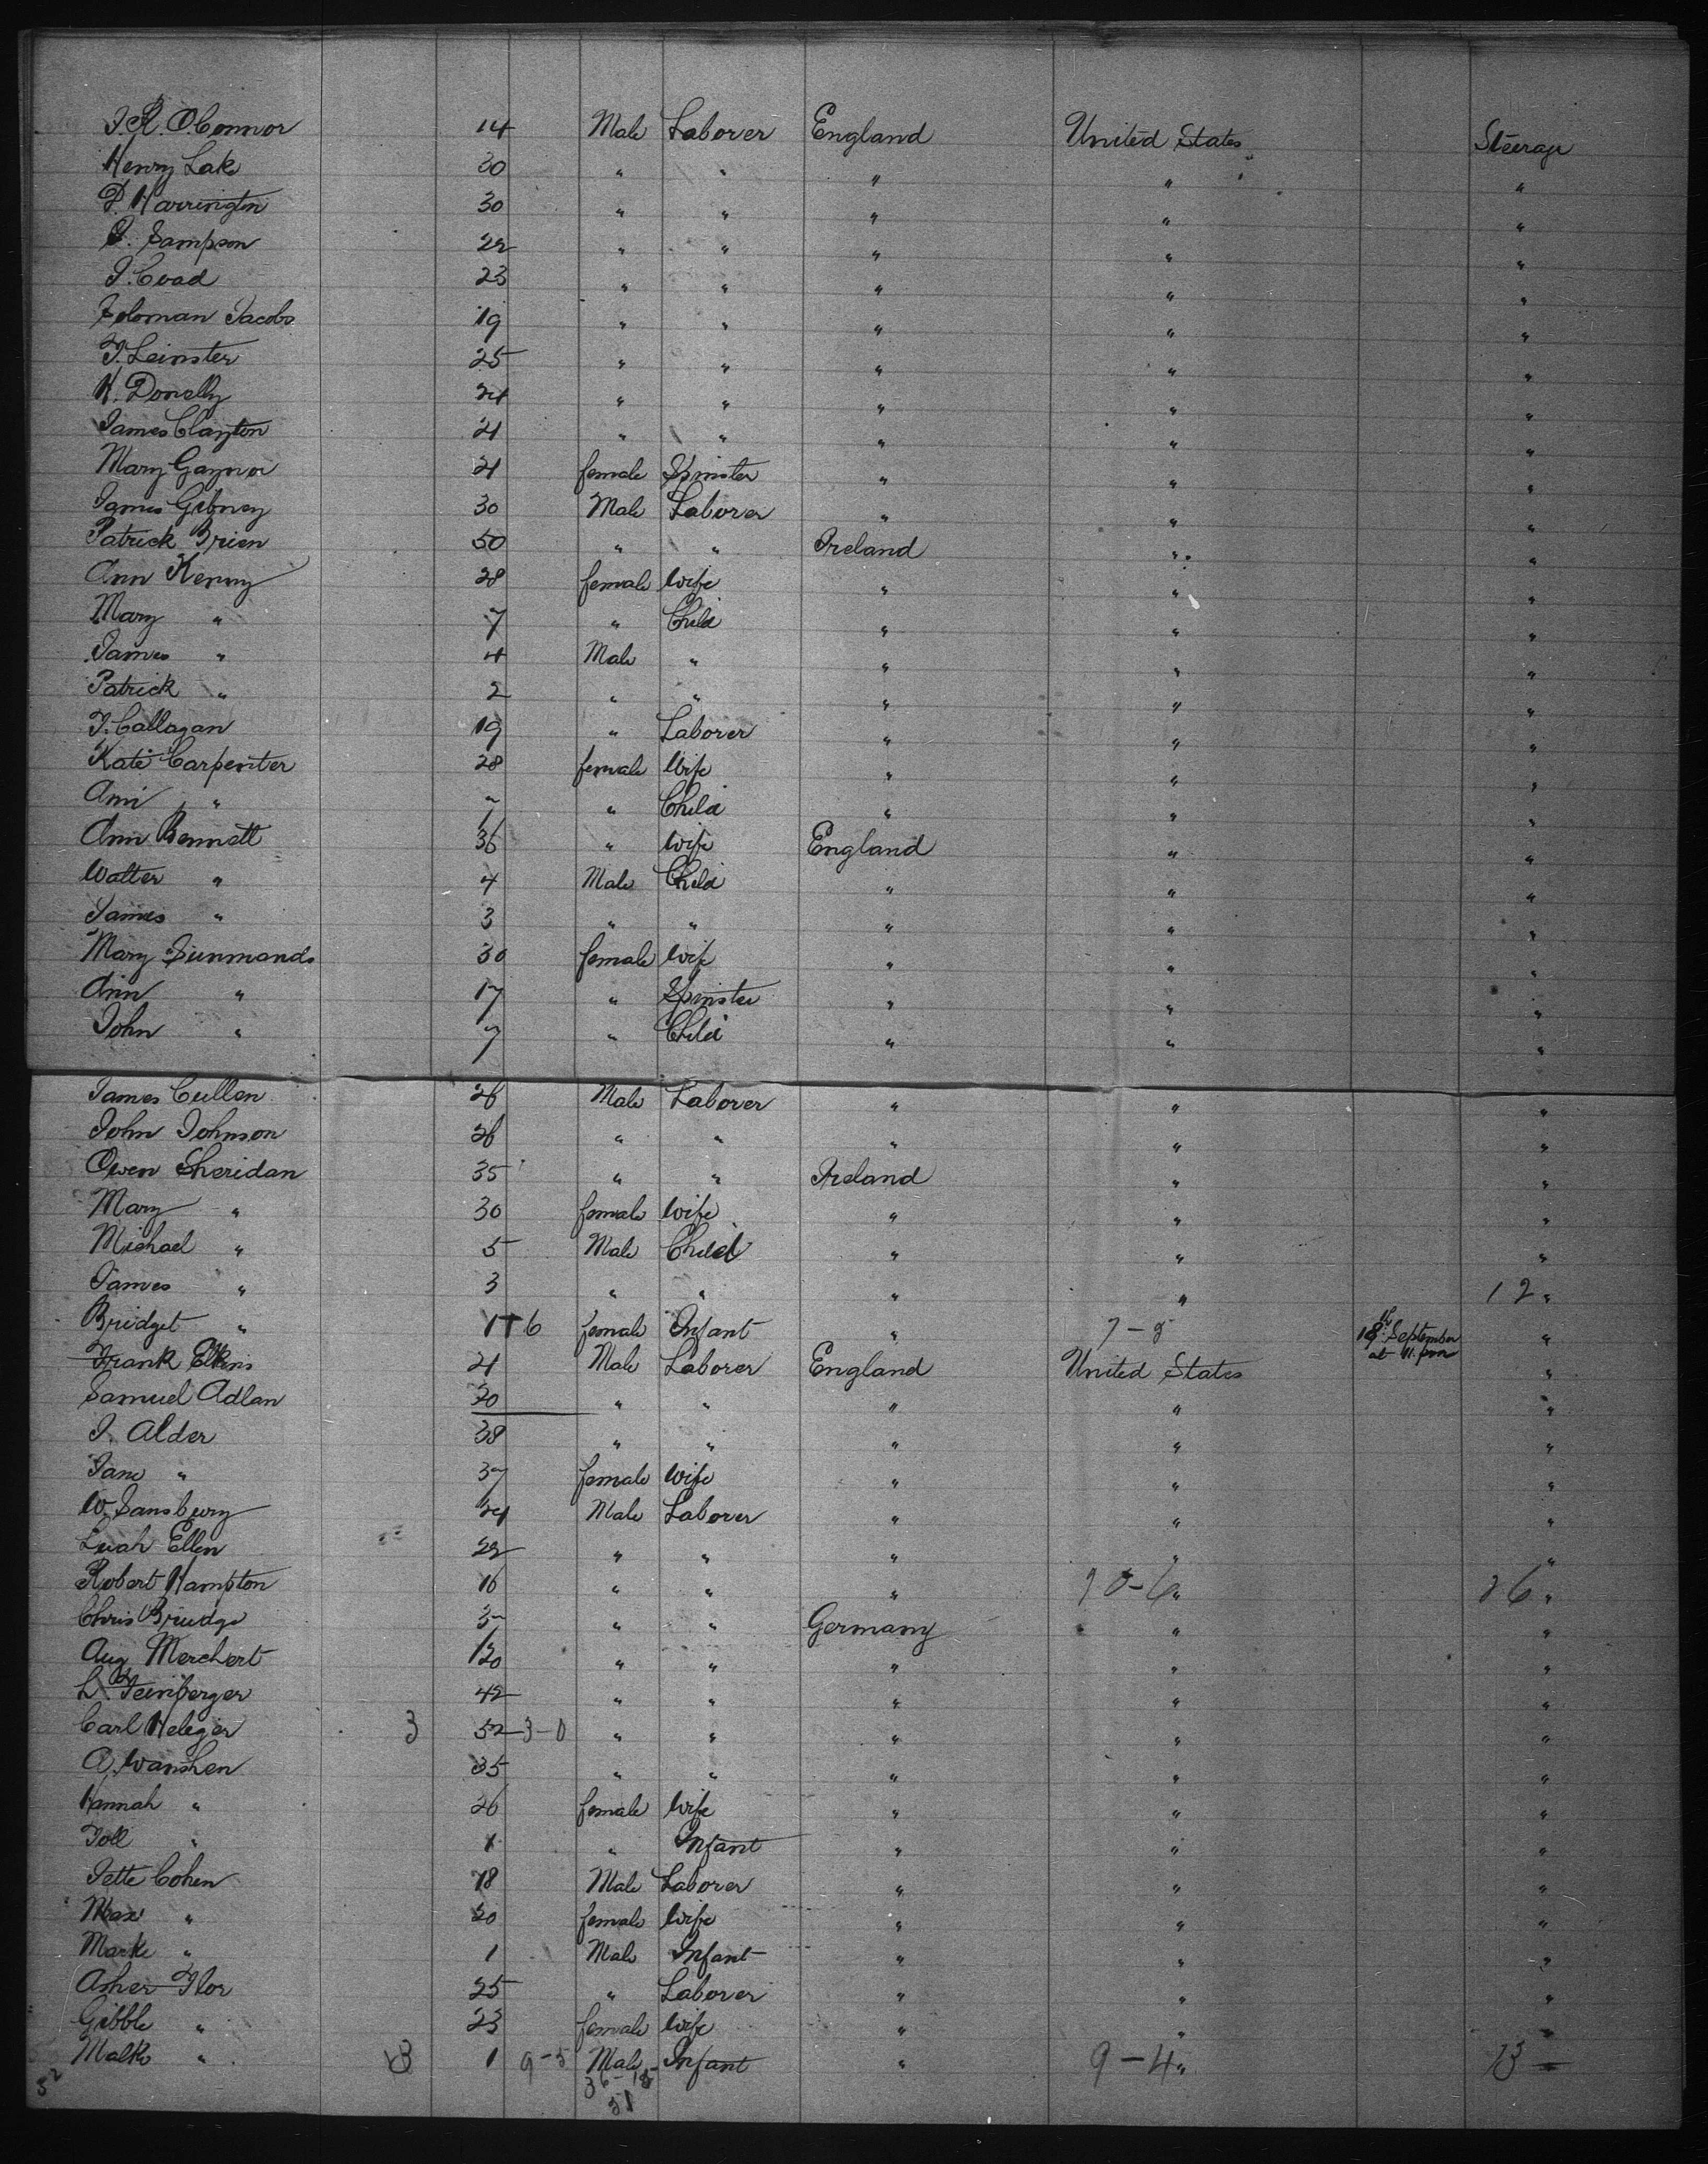 J.R. O'Connor 14 Male Laborer England United States Steerage
Henry Lake 30 " " " " "
P. Harrington 30 " " " " "
Sampson 22 " " " " "
J. Coad 23 " " " " "
Soloman Jacobs 19 " " " " "
T. Leinster 25 " " " " "
H. Donelly 24 " " " " "
James Clayton 21 " " " " "
Mary Gaynor 21 female Spinster " " "
James Gibney 30 Male Laborer " " "
Patrick Brien 50 " " Ireland " "
Ann Kenny 28 female Wife " " "
Mary " 7 " Child " " "
James " 4 Male " " " "
Patrick " 2 " " " " "
T. Callagan 19 " Laborer " " "
Kate Carpenter 28 female Wife " " "
Ann " 7 " Child " " "
Ann Bennett 36 " Wife England " "
Walter " 4 Male Child " " "
James " 3 " " " " "
Mary Simmonds 30 female Wife " " "
Ann " 17 " Spinster " " "
John " 7 " Child " " "
James Cullen 26 Male Laborer " " "
John Johnson 26 " " " " "
Owen Sheridan 35 " " Ireland " "
Mary " 30 female Wife " " "
Michael " 5 Male Child " " "
James " 3 " " " " 12 "
Bridget " 1 6 female Infant " 7-8 18th September at 11. pm "
Frank Elkins 21 Male Laborer England United States "
Samuel Adlan 20 " " " " "
J. Alder 38 " " " " "
Jane " 37 female Wife " " "
W. Sansbury 24 Male Laborer " " "
Leiah Ellen 22 " " " " "
Robert Hampton 16 " " " 10-6 " 26 "
Chris Brudge 37 " " Germany " "
Aug Merchert 20 " " " " "
L. Feinberger 42 " " " " "
Carl Heleger 3 52 3-0 " " " " "
A. Wanshen 35 " " " " "
Hannah " 26 female Wife " " "
Toll " 1 " Infant " " "
Jette Cohen 18 Male Laborer " " "
Max " 20 female Wife " " "
Marke " 1 Male Infant " " "
Asher Flor 25 " Laborer " " "
Gibble " 23 female Wife " " "
Malke " 13 1 9-5 Male Infant " 9-4 " 13
52 36-15
51